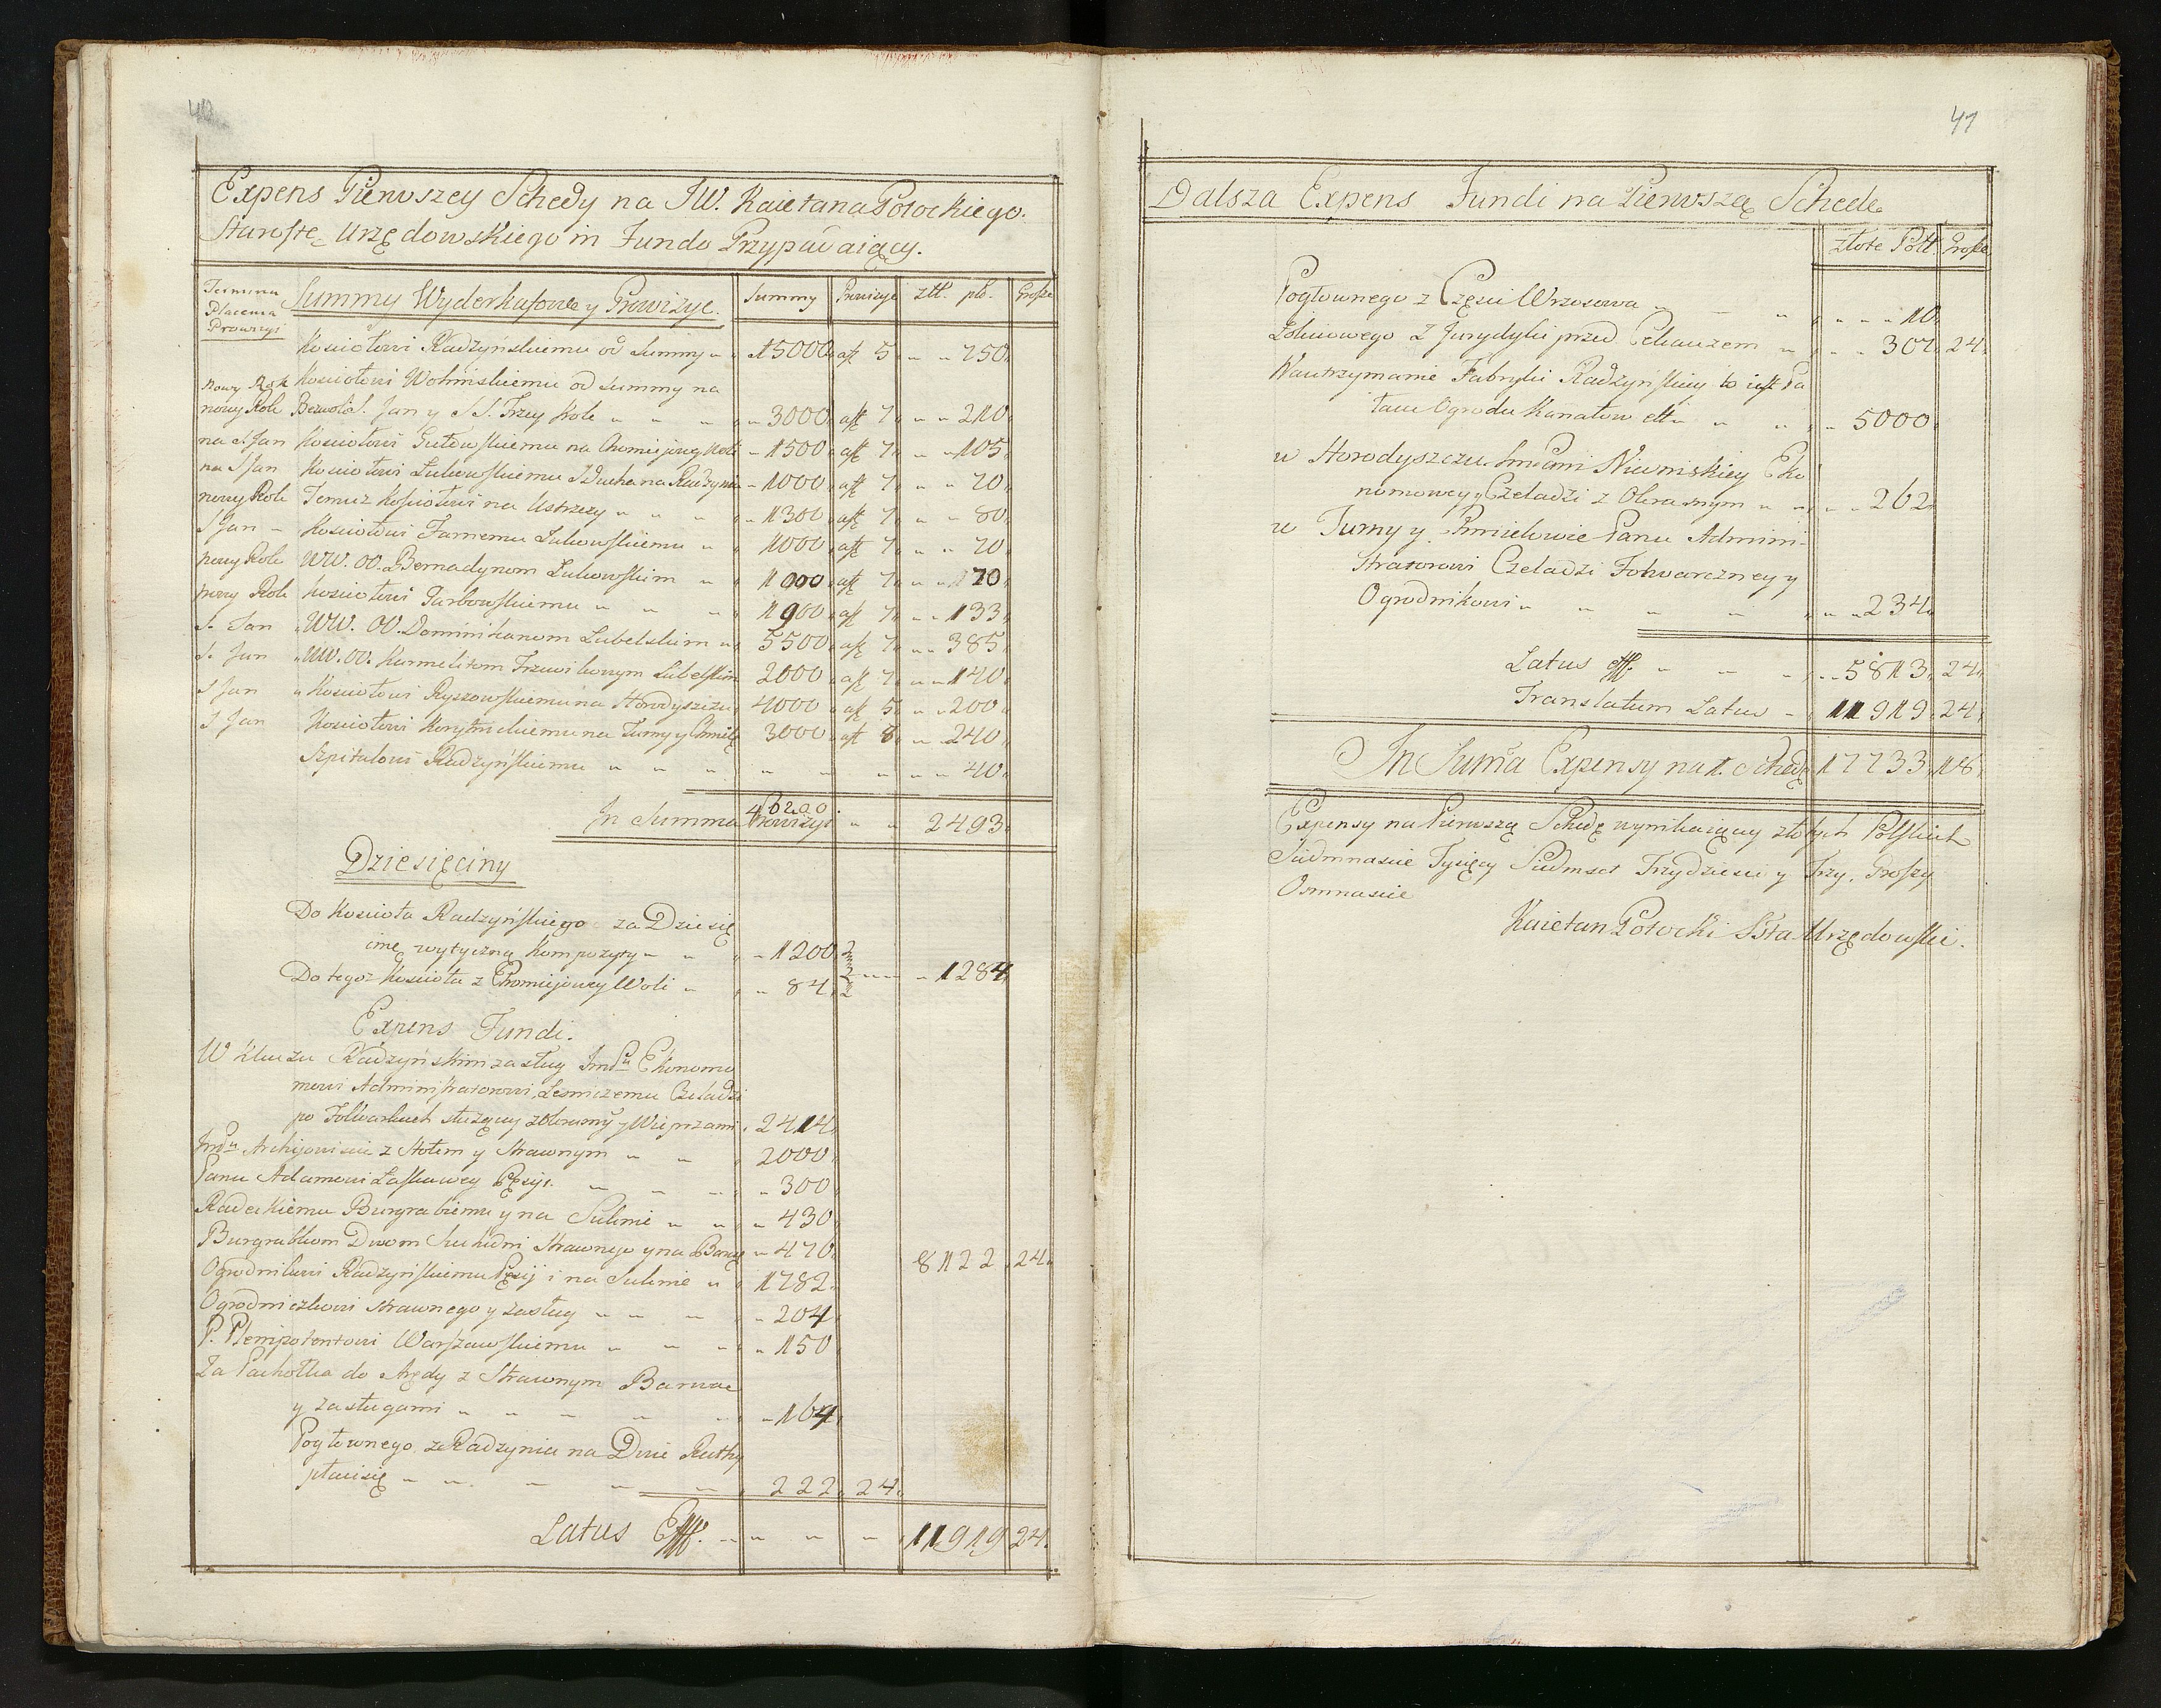 40
Expens Pierwszey Schedy na JW. Kaietana Potockiego.
Staroste Urzędowskiego in Fundo Przypadaiący.
Termina Płacenia Prowizyi | Summy Wyderkafowe y Prowizye. | Summy | Prowizye | złł. pol. | Grosze
Kosciołowi Radzyńskiemu od Summy " " | 15000 | a 5 | " " 750
Nowy Rok Kosciołowi Wohinskiemu od Summy na
nowy Rok Bezwoli S. Jan y SS. Trzey Krole " " " | 3000 | a 7 | " " 210
na S. Jan Kosciołowi Gułowskiemu na Chomiejowey Woli | " 1500 | a 7 | " " 105
na S Jan Kosciołowi Łukowskiemu S Ducha na Radzyniu | " 1000 | a 7 | " " 70
nowy Rok Temuz Kosciołowi na Ustrzezy " " " | 1300 | a 7 | " " 80
S Jan – Kosciołowi Farnemu Łukowskiemu " | 1000 | a 7 | " " 70
nowy Rok WW. OO. Bernadynom Łukowskim " | 1000 | a 7 | " " 170
nowy Rok Kosciołowi Garbowskiemu " " " | 1900 | a 7 | " " 133
S. Jan " WW. OO. Dominikanom Lubelskim " | 5500 | a 7 | " " 385
S. Jan " WW. OO. Karmelitom Trzewikowym Lubelskim | 2000 | a 7 | " " 140
S Jan " Kosciołowi Ryszowskiemu na Horodyszczu | 4000 | a 5 | " " 200
S Jan Kosciołowi Korytnickiemu na Turny y Chmiele | 3000 | a 8 | " " 240
Szpitalowi Radzyńskiemu " " " " " " " 40
40200
In Summa Prowizyi " " 2493
Dziesięciny
Do Koscioła Radzyńskiego za Dziesię
cinę wytyczną Kompozyty " " " 1200
Do tegoz Koscioła z Chomiejowey Woli " " 84 | " 1284
Expens Fundi.
W Kluczu Radzyńskim zasług ImPu Ekonomo
mowi Administratorowi, Lesniczemu Czeladzi
po Folwarkach służący z Obrasny y Wieprzami " 2414
ImPu Archijowi z Stołem y Strawnym " " 2000
Panu Adamowi Łaskawey Pęsyi. " " " 300
Radeckiemu Burgrabiemu y na Suknie " " " 430
Burgrabkom Dwom Suchedni Strawnego y na Barwę " 470
8122 24
Ogrodnikowi Radzyńskiemu Pęsij i na Suknie " 1782
Ogrodniczkowi strawnego y zasług " " " 204
P. Plenipotentowi Warszawskiemu " " " 150
Za Pachołka do Arędy z Strawnym Barwac
y zasługami " " " " " 164
Pogłownego ze Radzynia na Dwie Rathy
płacisię " " " " " 222 24
Latus Eff. " " " " 11919 24
41
Dalsza Expens Fundi na Pierwszą Schedę
złote Poll. | Grosze
Pogłownego z Częsci Wrzosowa " " " " " " 10
Łokciowego z Jurydyki przed Pchauzem " " " 307 24
Wautrzymanie Fabryki Radzyńskiey to iest Pa
łacu Ogrodu Kanałow ett " " " " 5000
w Horodyszczu ImPani Niewniskiey Eko
nomowey y Czeladzi z Okrasnym " " " " 262
w Turny y Chmielowie Panu Admini-
Stratorowi Czeladzi Folwarczney y
Ogrodnikowi " " " " " " 234
Latus eff. " " " " 5813 24
Translatum Latus " 11919 24
In Suma Expensy na 1. Schedę 17733 18
Expensy na Pierwszą Schedę wynikaiący złotych Polskich
Siedmnascie Tysięcy Siedmset Trzydziesci y Trzy, Groszy
Osmnascie
Kaietan Potocki Sta Urzędowski.